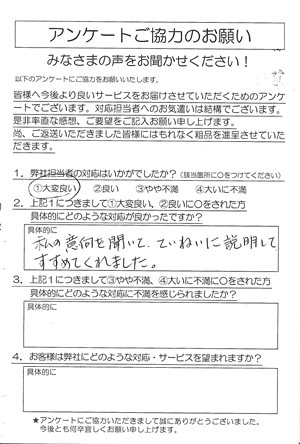 アンケートご協力のお願い
みなさまの声をお聞かせください！
以下のアンケートにご協力をお願いいたします。
皆様へ今後より良いサービスをお届けさせていただくためのアンケ
ートでございます。対応担当者へのお気遣いは結構でございます。
是非率直な感想、ご要望をご記入お願い申し上げます。
尚、ご返送いただきました皆様にはもれなく粗品を進呈させていた
だきます。
1．弊社担当者の対応はいかがでしたか？（該当箇所に○をつけてください）
①大変良い　②良い　③やや不満　④大いに不満
2．上記1につきまして①大変良い、②良いに○をされた方
具体的にどのような対応が良かったですか？
具体的に
私の意向を聞いて、ていねいに説明して
すすめてくれました。
3．上記1につきまして③やや不満、④大いに不満に○をされた方
具体的にどのような対応に不満を感じられましたか？
具体的に
4．お客様は弊社にどのような対応・サービスを望まれますか？
具体的に
★アンケートにご協力いただきまして誠にありがとうございました。
今後とも何卒宜しくお願い申し上げます。